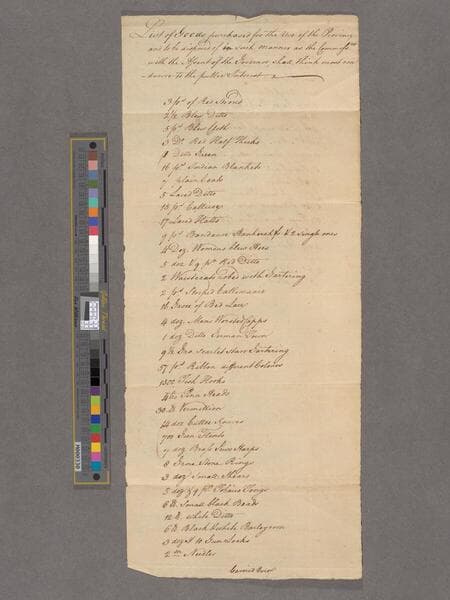 List of Goods purchased for the Use of the Province
and to be disposed of in such manner as the Commissrs
with the Assent of the Governor shall think most con
-ducive to the publick Interest
3 ps. of Red Stroud
2½ Blew Ditto
5 ps. Blew Cloth
3 Do. Red Half Thicks
8 Ditto Green
16 ps. Indian Blankets
9 plain Coats
5 Laced Ditto
15 ps. Callicoes
17 Laced Hatts
9 ps. Bandanoe Handkerch'fs & 2 Single ones
4 Doz. Womens blew Hose
5 doz & 9 pr. Red Ditto
2 Waistcoats with Gartering
2 ps. Striped Callimanco
16 Groce of Bed Lace
4 doz Mens Worsted Capps
1 doz Ditto German Town
9½ Gro. Scarlet Starr Gartering
37 ps. Ribbon different Colours
1300 Fish Hooks
30 lb Vermillion
44 doz Cuttoe Knives
700 Gun Flints
9 doz Brass Jews Harps
8 Groce Stone Rings
3 doz Small Shears
5 doz & 9 pr Tobacco Tongs
6 lb Small black Beads
12 lb white Ditto
6 lb Black & white Barleycorn
3 doz & 10 Gun Locks
2 m Needles
Carried Over